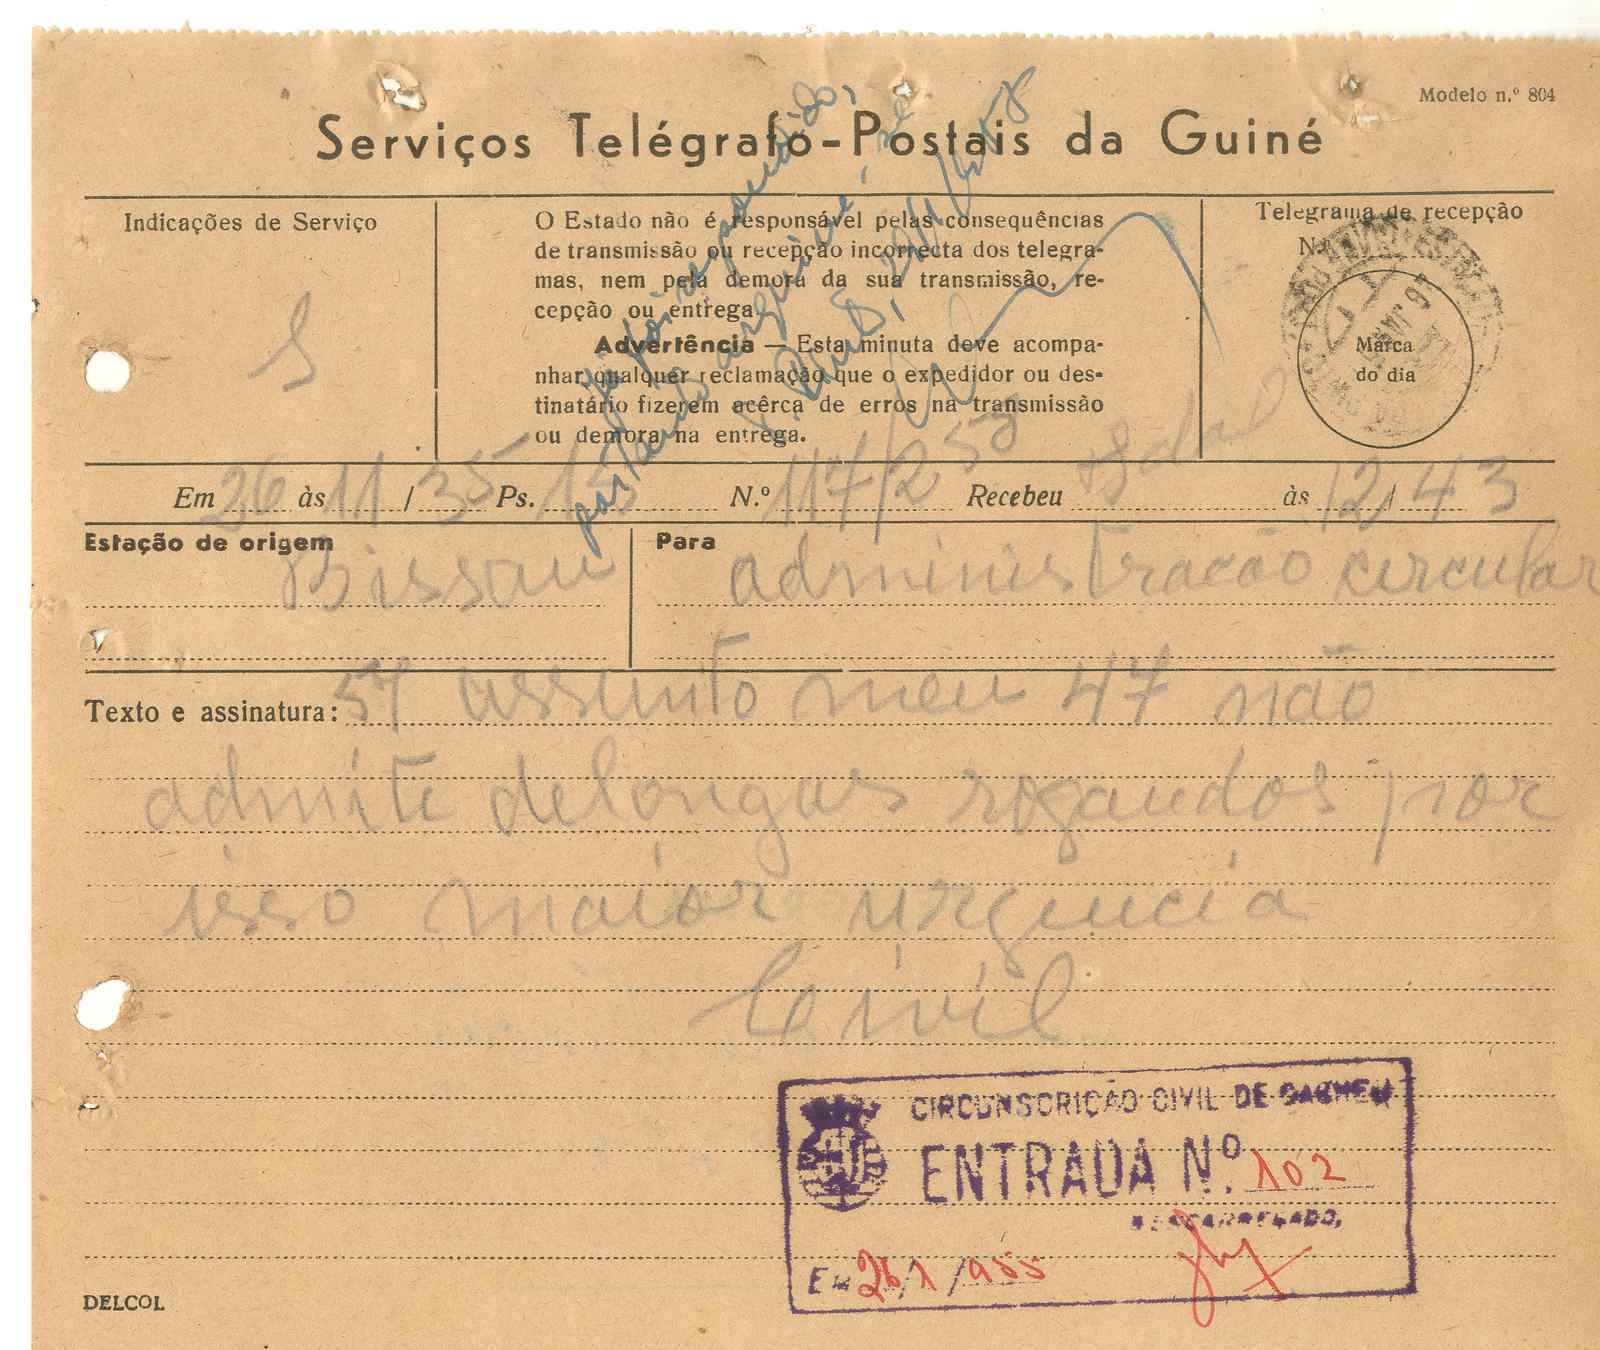 Modelo n.º 804
Serviços Telégrafo-Postais da Guiné
Indicações de Serviço
S
O Estado não é responsável pelas consequências
de transmissão ou recepção incorrecta dos telegra-
mas, nem pela demora da sua transmissão, re-
cepção ou entrega.
Advertência — Esta minuta deve acompa-
nhar qualquer reclamação que o expedidor ou des-
tinatário fizerem acêrca de erros na transmissão
ou demora na entrega.
Telegrama de recepção
N.
Marca
do dia
já foi respondido,
portanto arquive-se
Em 26 às 11 / 35 Ps. 15 N.º 117/253 Recebeu às 12 / 43
Estação de origem Bissau Para administração circular
Texto e assinatura: 57 assunto meu 47 não
admite delongas rogandos por
isso maior urgencia
Civil
CIRCUNSCRIÇÃO CIVIL DE CACHEU
ENTRADA N.º 102
O ENCARREGADO,
Em 26/1/955
DELCOL